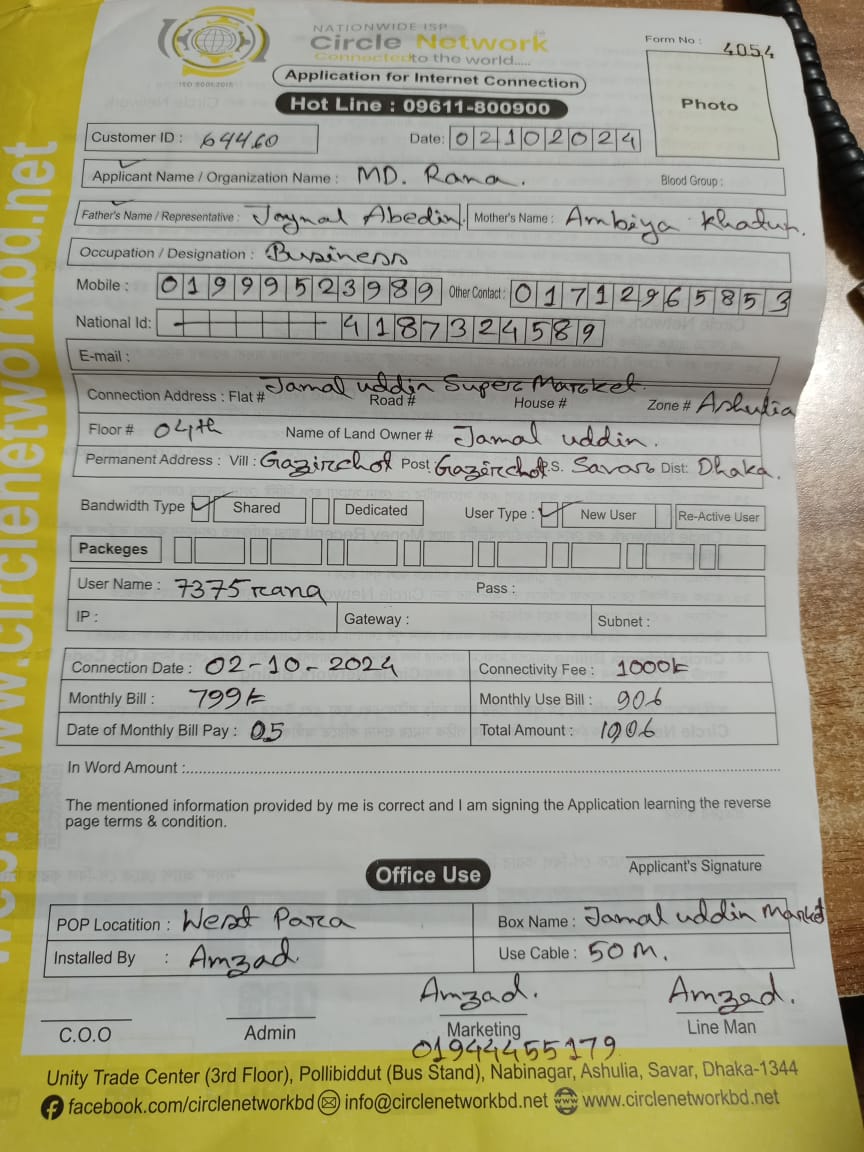 NATIONWIDE ISP
Circle Network
Connected to the world.....
ISO 9001:2015
Form No : 4054
Application for Internet Connection
Hot Line : 09611-800900
Photo
Customer ID : 64460
Date: 02102024
Applicant Name / Organization Name : MD. Rana.
Blood Group :
Father's Name / Representative : Joynal Abedin. Mother's Name : Ambiya Khadun.
Occupation / Designation : Business
Mobile : 01999523989 Other Contact : 01712965853
National Id: 4187324589
E-mail :
Connection Address : Flat # Jamal uddin Super Market. Road # House # Zone # Ashulia
Floor # 04th Name of Land Owner # Jamal uddin.
Permanent Address : Vill : Gazirchot Post : Gazirchot P.S. Savar Dist: Dhaka.
Bandwidth Type Shared Dedicated User Type : New User Re-Active User
Packeges
User Name : 7375rana Pass :
IP : Gateway : Subnet :
Connection Date : 02-10-2024 Connectivity Fee : 1000
Monthly Bill : 799 Monthly Use Bill : 906
Date of Monthly Bill Pay : 05 Total Amount : 1906
In Word Amount :
The mentioned information provided by me is correct and I am signing the Application learning the reverse
page terms & condition.
Applicant's Signature
Office Use
POP Locatition : West Para Box Name : Jamal uddin Market
Installed By : Amzad. Use Cable : 50 M.
Amzad. Amzad.
C.O.O Admin Marketing Line Man
01944455179
Unity Trade Center (3rd Floor), Pollibiddut (Bus Stand), Nabinagar, Ashulia, Savar, Dhaka-1344
facebook.com/circlenetworkbd info@circlenetworkbd.net www.circlenetworkbd.net
www.circlenetworkbd.net